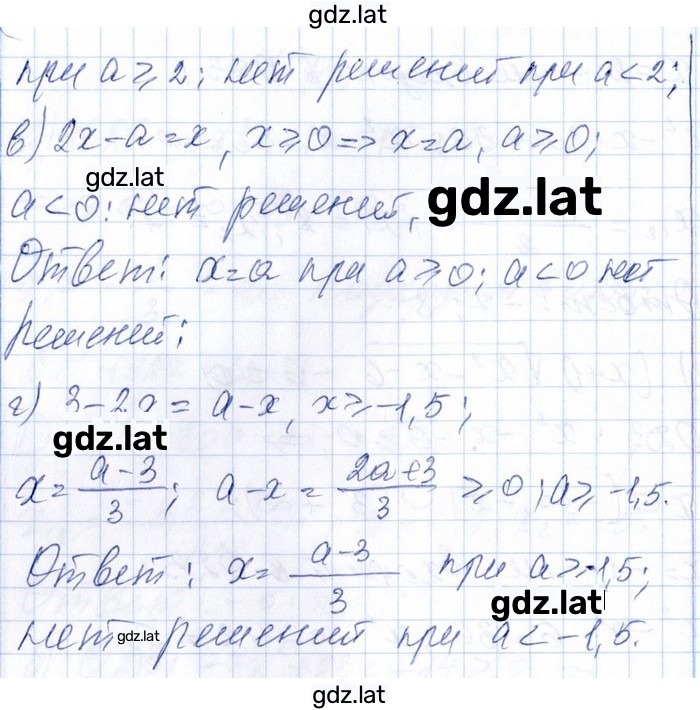 gdz.lat
при a ⩾ 2; нет решений при a < 2;
в) 2x - a = x, x ⩾ 0 => x = a, a ⩾ 0;
gdz.lat
a < 0: нет решений, gdz.lat
Ответ: x = a при a ⩾ 0; a < 0 нет
решений;
г) 3 - 2x = a - x, x ⩾ -1,5;
gdz.lat
x = (a - 3)/3; a - x = (2a + 3)/3 ⩾ 0; a ⩾ -1,5.
Ответ: x = (a - 3)/3 при a ⩾ -1,5;
gdz.lat
нет gdz.lat решений при a < -1,5.
gdz.lat